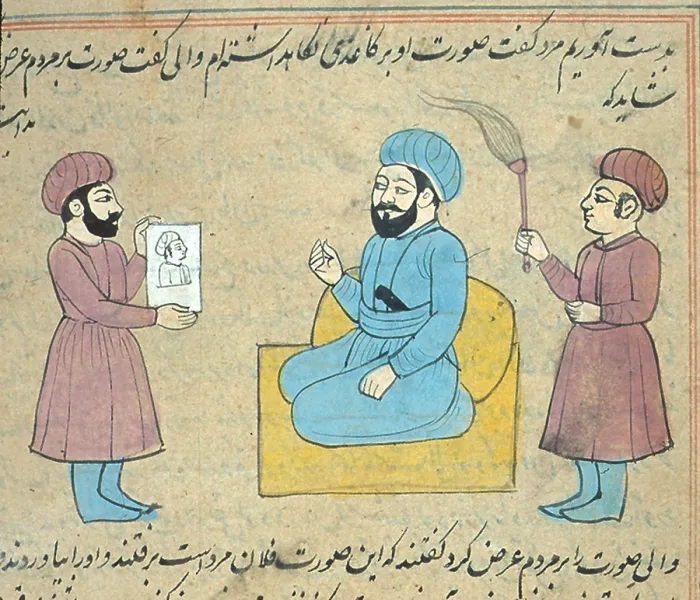 بدست آوریم مرد گفت صورت او بر کاغذی نگاهداشته‌ام والی گفت صورت بر مردم عرض
شاید که
والی صورت را بر مردم عرض کرد گفتند که این صورت فلان مرد است برفتند و او را بیاوردند و